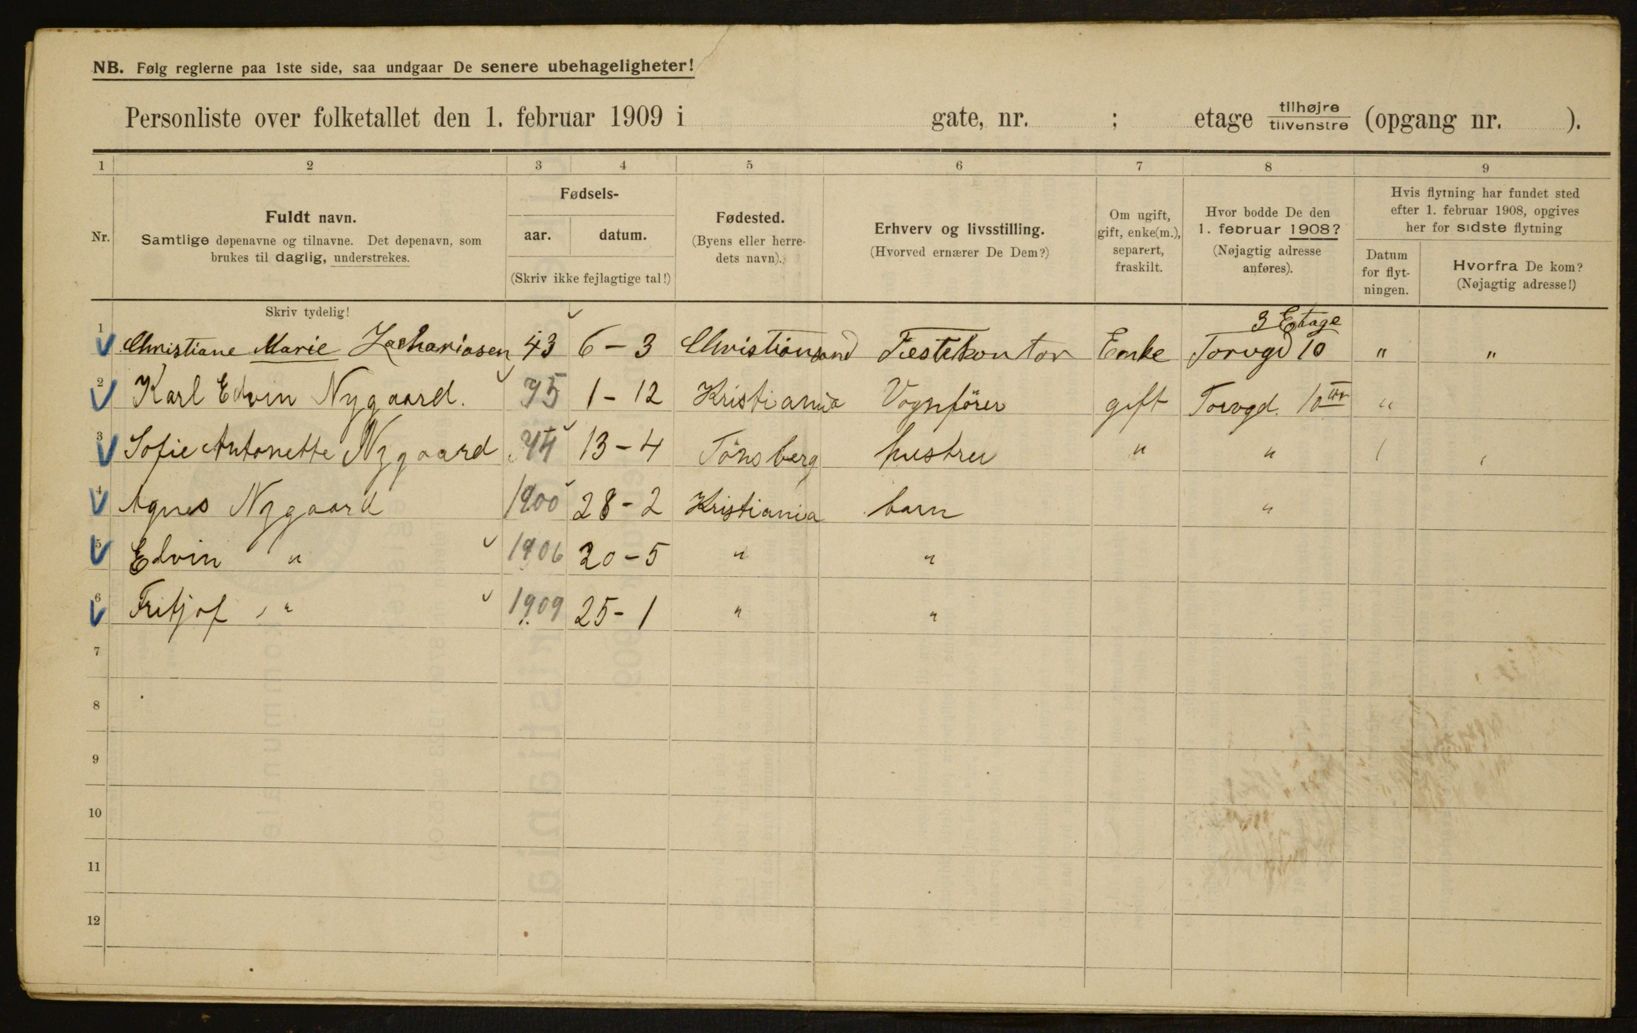 NB. Følg reglerne paa 1ste side, saa undgaar De senere ubehageligheter!
Personliste over folketallet den 1. februar 1909 i gate, nr. ; etage tilhøjre tilvenstre (opgang nr. ).
1 2 3 4 5 6 7 8 9
Nr.
Fuldt navn.
Samtlige døpenavne og tilnavne. Det døpenavn, som
brukes til daglig, understrekes.
Fødsels-
aar. datum.
(Skriv ikke fejlagtige tal!)
Fødested.
(Byens eller herre-
dets navn).
Erhverv og livsstilling.
(Hvorved ernærer De Dem?)
Om ugift,
gift, enke(m.),
separert,
fraskilt.
Hvor bodde De den
1. februar 1908?
(Nøjagtig adresse
anføres).
Hvis flytning har fundet sted
efter 1. februar 1908, opgives
her for sidste flytning
Datum
for flyt-
ningen.
Hvorfra De kom?
(Nøjagtig adresse!)
Skriv tydelig!
3 Etage
1 Christiane Marie Zachariasen 43 6-3 Christiansand Festekontor Enke Torvgd 10 " "
2 Karl Edvin Nygaard. 75 1-12 Kristiania Vognfører gift Torvgd. 10 "
3 Sofie Antonette Nygaard 74 13-4 Tønsberg hustru " "
4 Agnes Nygaard 1900 28-2 Kristiania barn "
5 Edvin " 1906 20-5 " "
6 Fritjof " 1909 25-1 " "
7
8
9
10
11
12